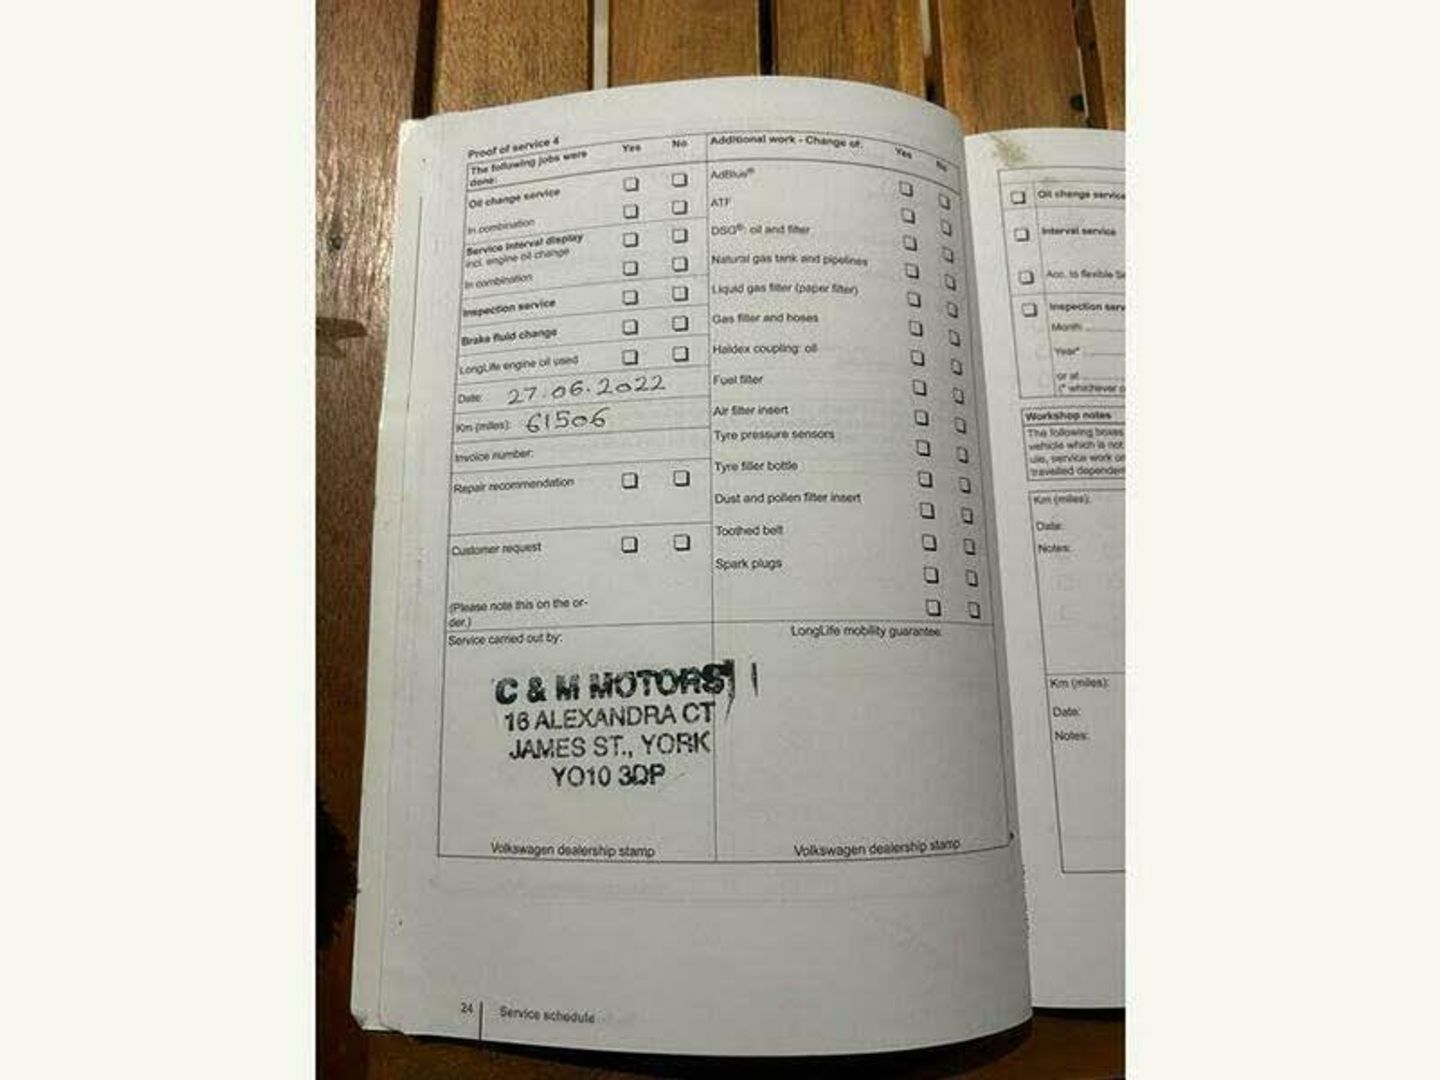 Proof of service 4
The following jobs were
done:
Yes No
Oil change service
In combination
Service interval display
incl. engine oil change
In combination
Inspection service
Brake fluid change
LongLife engine oil used
Date: 27.06.2022
Km (miles): 61506
Invoice number:
Repair recommendation
Customer request
(Please note this on the or-
der.)
Service carried out by:
C & M MOTORS
16 ALEXANDRA CT
JAMES ST., YORK
YO10 3DP
Volkswagen dealership stamp
Additional work - Change of:
Yes No
AdBlue®
ATF
DSG®: oil and filter
Natural gas tank and pipelines
Liquid gas filter (paper filter)
Gas filter and hoses
Haldex coupling: oil
Fuel filter
Air filter insert
Tyre pressure sensors
Tyre filler bottle
Dust and pollen filter insert
Toothed belt
Spark plugs
LongLife mobility guarantee:
Volkswagen dealership stamp
24 Service schedule
Oil change service
Interval service
Acc. to flexible
Inspection
Month
Year*
or at
(* whichever
Workshop notes
The following boxes
vehicle which is not
service work
travelled
Km (miles):
Date:
Notes:
Km (miles):
Date:
Notes: